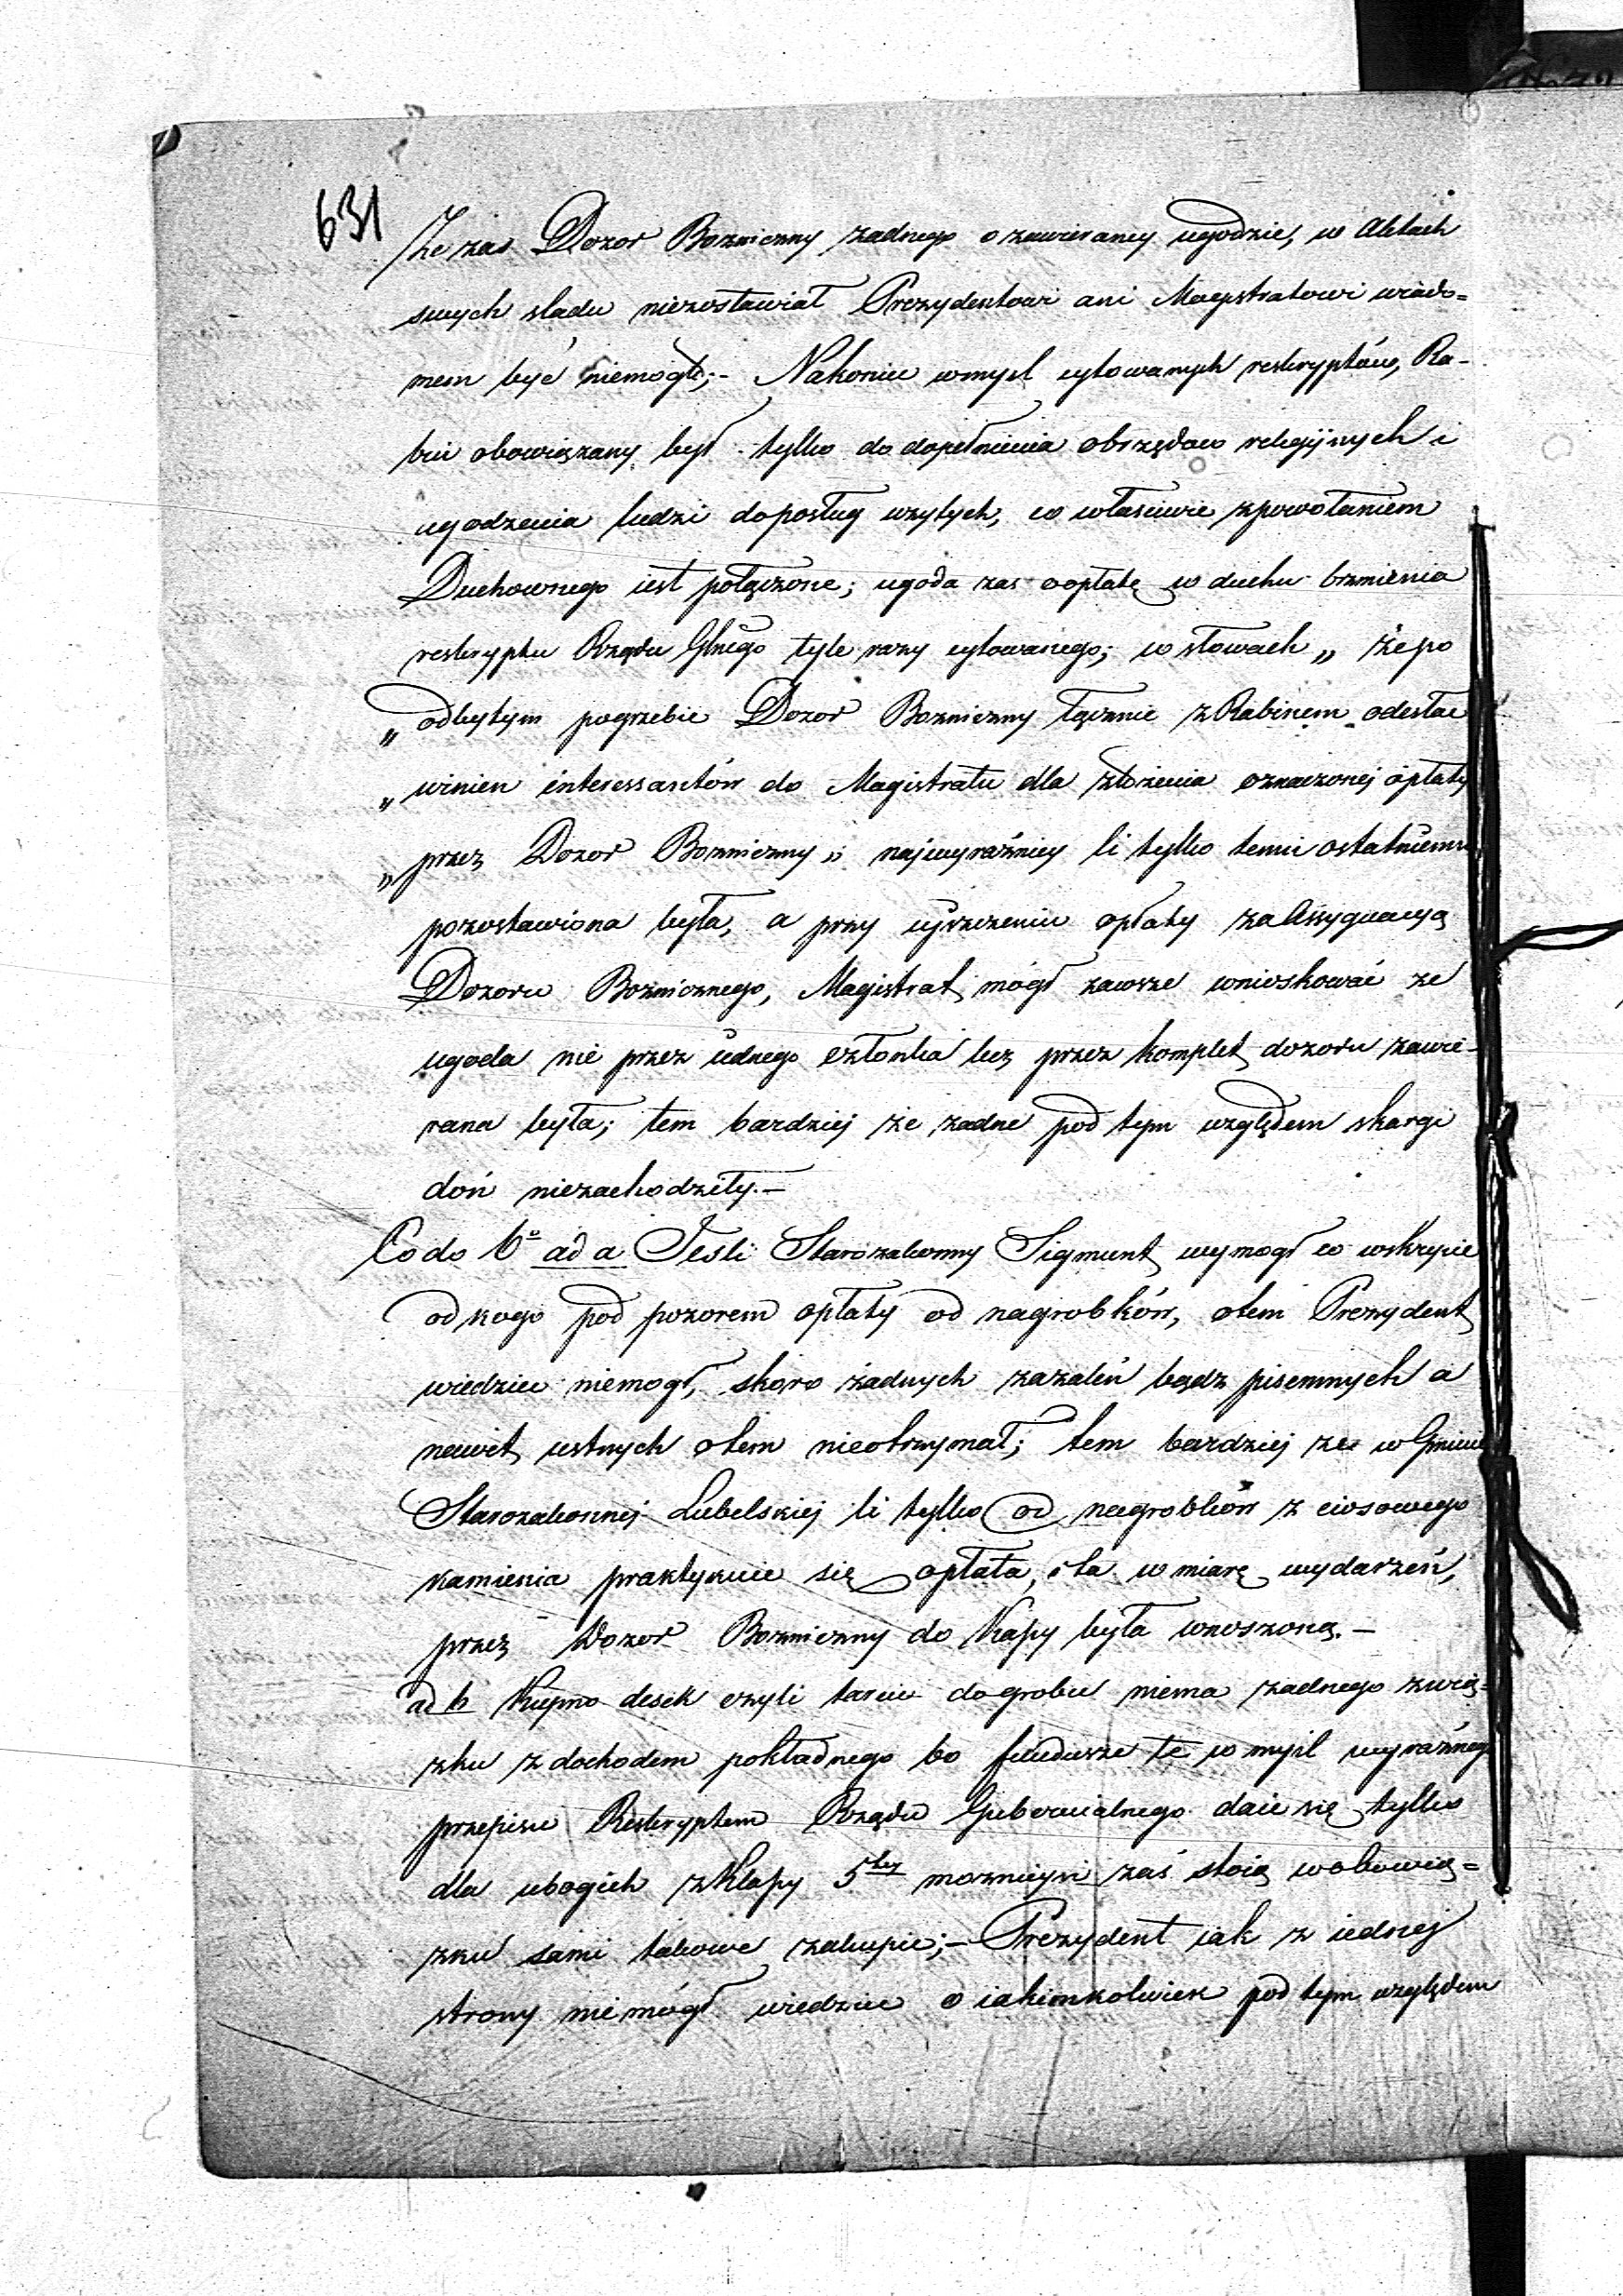 631
Ze zas Dozor Bozniczny zadnego o zawieraney ugodzie, w Aktach
swych sladu niezostawiał Prezydentowi ani Magistratowi wiado=
mem być niemogło;- Nakoniec wmysl cytowanych reskryptów, Ra-
bin obowiązany był tylko do dopełnienia obrzędow religijnych i
ugodzenia ludzi doposług użytych, co własciwie zpowołaniem
Duchownego iest połączone; ugoda zas oopłatę w duchu brzmienia
reskryptu Rządu Glnego tyle razy cytowanego; w słowach „ że po
„ odbytym pogrzebie Dozor Bozniczny łącznie z Rabinem odesłac
„ winien interessantów do Magistratu dla złożenia oznaczonej opłaty
„ przez Dozor Bozniczny „ najwyraźniey li tylko temu ostatniemu
pozostawiona była, a przy uiszczeniu opłaty za Assygnacyą
Dozoru Boznicznego, Magistrat mógł zawsze wnioskować ze
ugoda nie przez iednego członka lecz przez komplet dozoru zawie-
rana była; tem bardziej że zadne pod tym względem skargi
doń niezachodziły.-
Co do 6o ad a Jesli Starozakonny Sigmunt wymogł co wskrycie
od kogo pod pozorem opłaty od nagrobków, otem Prezydent
wiedziec niemogł, skoro żadnych zazaleń bądz pisemnych a
nawet ustnych otem nieotrzymał; tem bardziej ze w Gminie
Starozakonnej Lubelskiej li tylko od nagrobków z ciosowego
kamienia praktykuie się opłata, i ta w miarę wydarzeń,
przez Dozor Bozniczny do Kassy była wnoszoną.-
ad b Kupno desek czyli tarcic do grobu niema zadnego zwią-
zku z dochodem pokładnego bo fundusze te w myśl wyraźnego
przepisu Reskryptem Rządu Gubernialnego daie się tylko
dla ubogich z Klassy 5tey mozniejsi zaś stoią wobowią=
zku sami takowe zakupic;- Prezydent iak z iednej
strony nie mógł wiedziec o iakimkolwiek pod tym względem